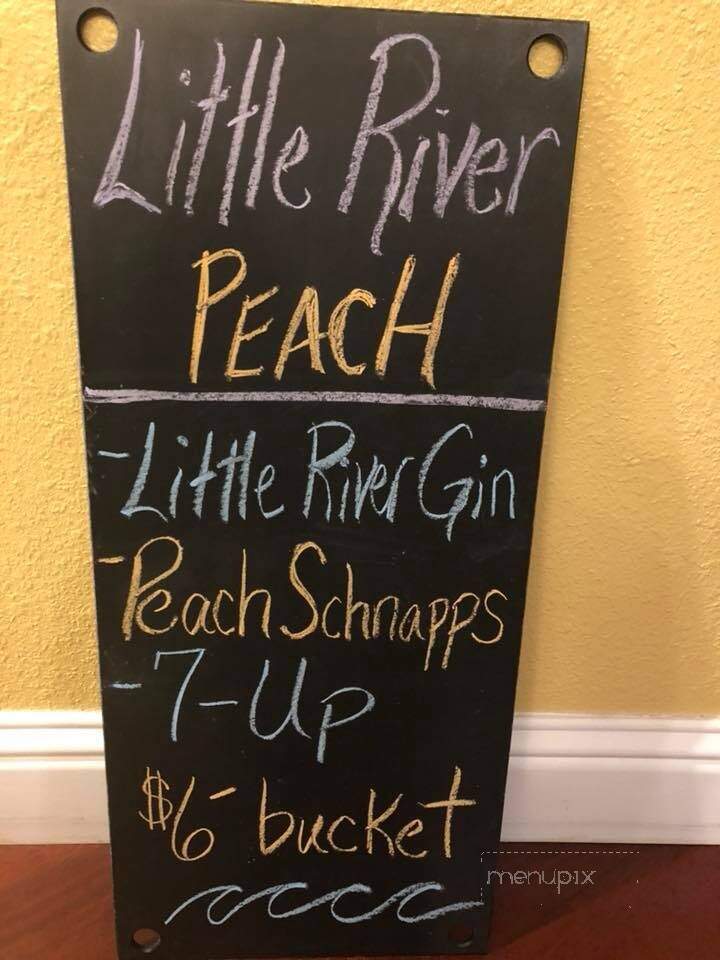 Little River
PEACH
-Little River Gin
-Peach Schnapps
-7-Up
$6- bucket
menupix